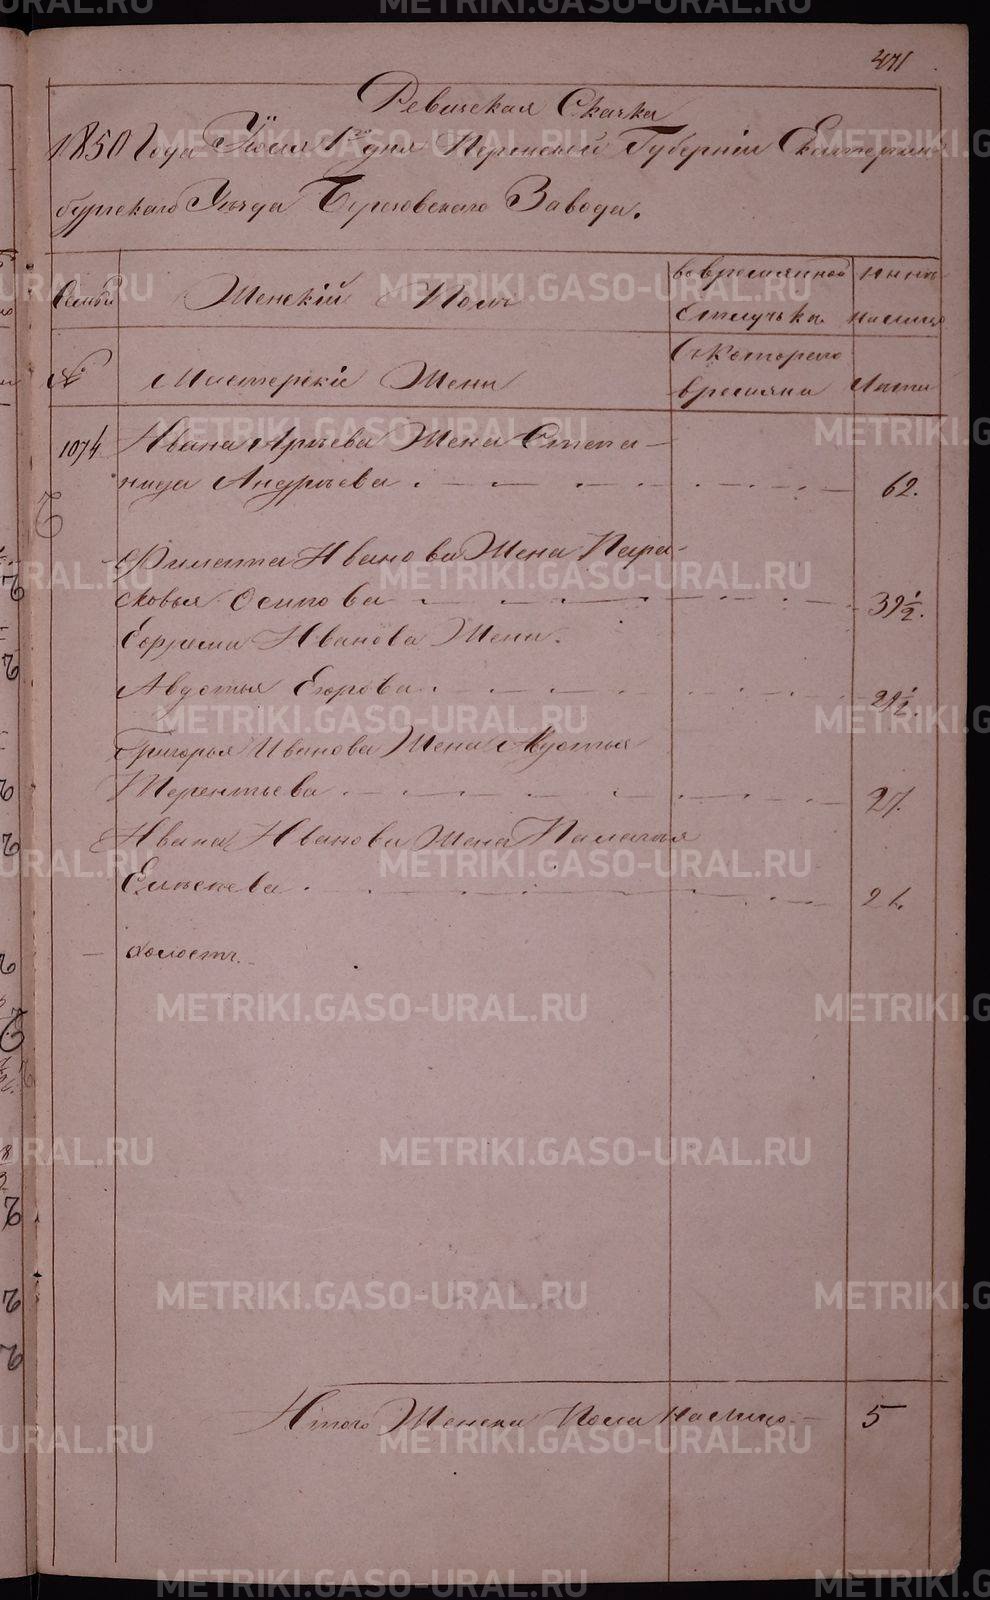 471
Ревизская Скачка
1850 Года Июля 1го дня Пермской Губернии Екатерин
бургскаго Уезда Березовскаго Завода.
Семьи Женскiй Полъ во времянной отлучьке ныне
на лицо
№ Мастерскiе Жены Съ котораго
времяни Лета
1074 Ивана Арпева Жена Степа-
нида Андреева 62.
Филата Иванова Жена Пара-
сковья Осипова 39½.
Ефрема Иванова Жена.
Авдотья Егорова 29½.
Григорья Иванова Жена Авдотья
Терентьева 27.
Ивана Иванова Жена Палагая
Елисеева
холостъ.
Итого Женска Пола на лицо 5
METRIKI.GASO-URAL.RU